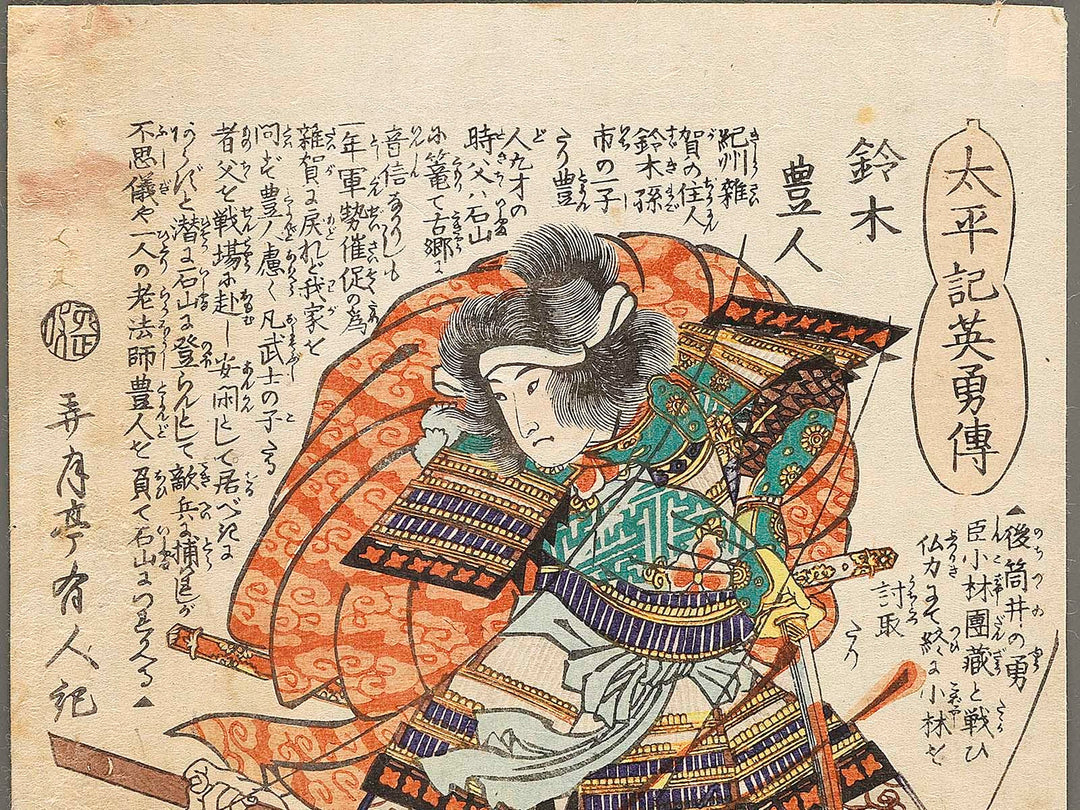 太平記英勇傳
鈴木
豊人
紀州雑
賀の住人
鈴木孫
市の一子
たり豊
人九才の
時父ハ石山
に篭て古郷に
音信なかりしも
一年軍勢催促の為
雑賀に戻れど我家を
問ず豊人慮く凡武士の子たる
者父を戦場に赴し安閑として居べきに
あらずと潜に石山に登らんとして敵兵に捕れしが
不思儀や一人の老法師豊人を負て石山につれきたる▲
弄月亭有人記
▲後筒井の勇
臣小林團藏と戦ひ
仏力にて終に小林を
討取
たり